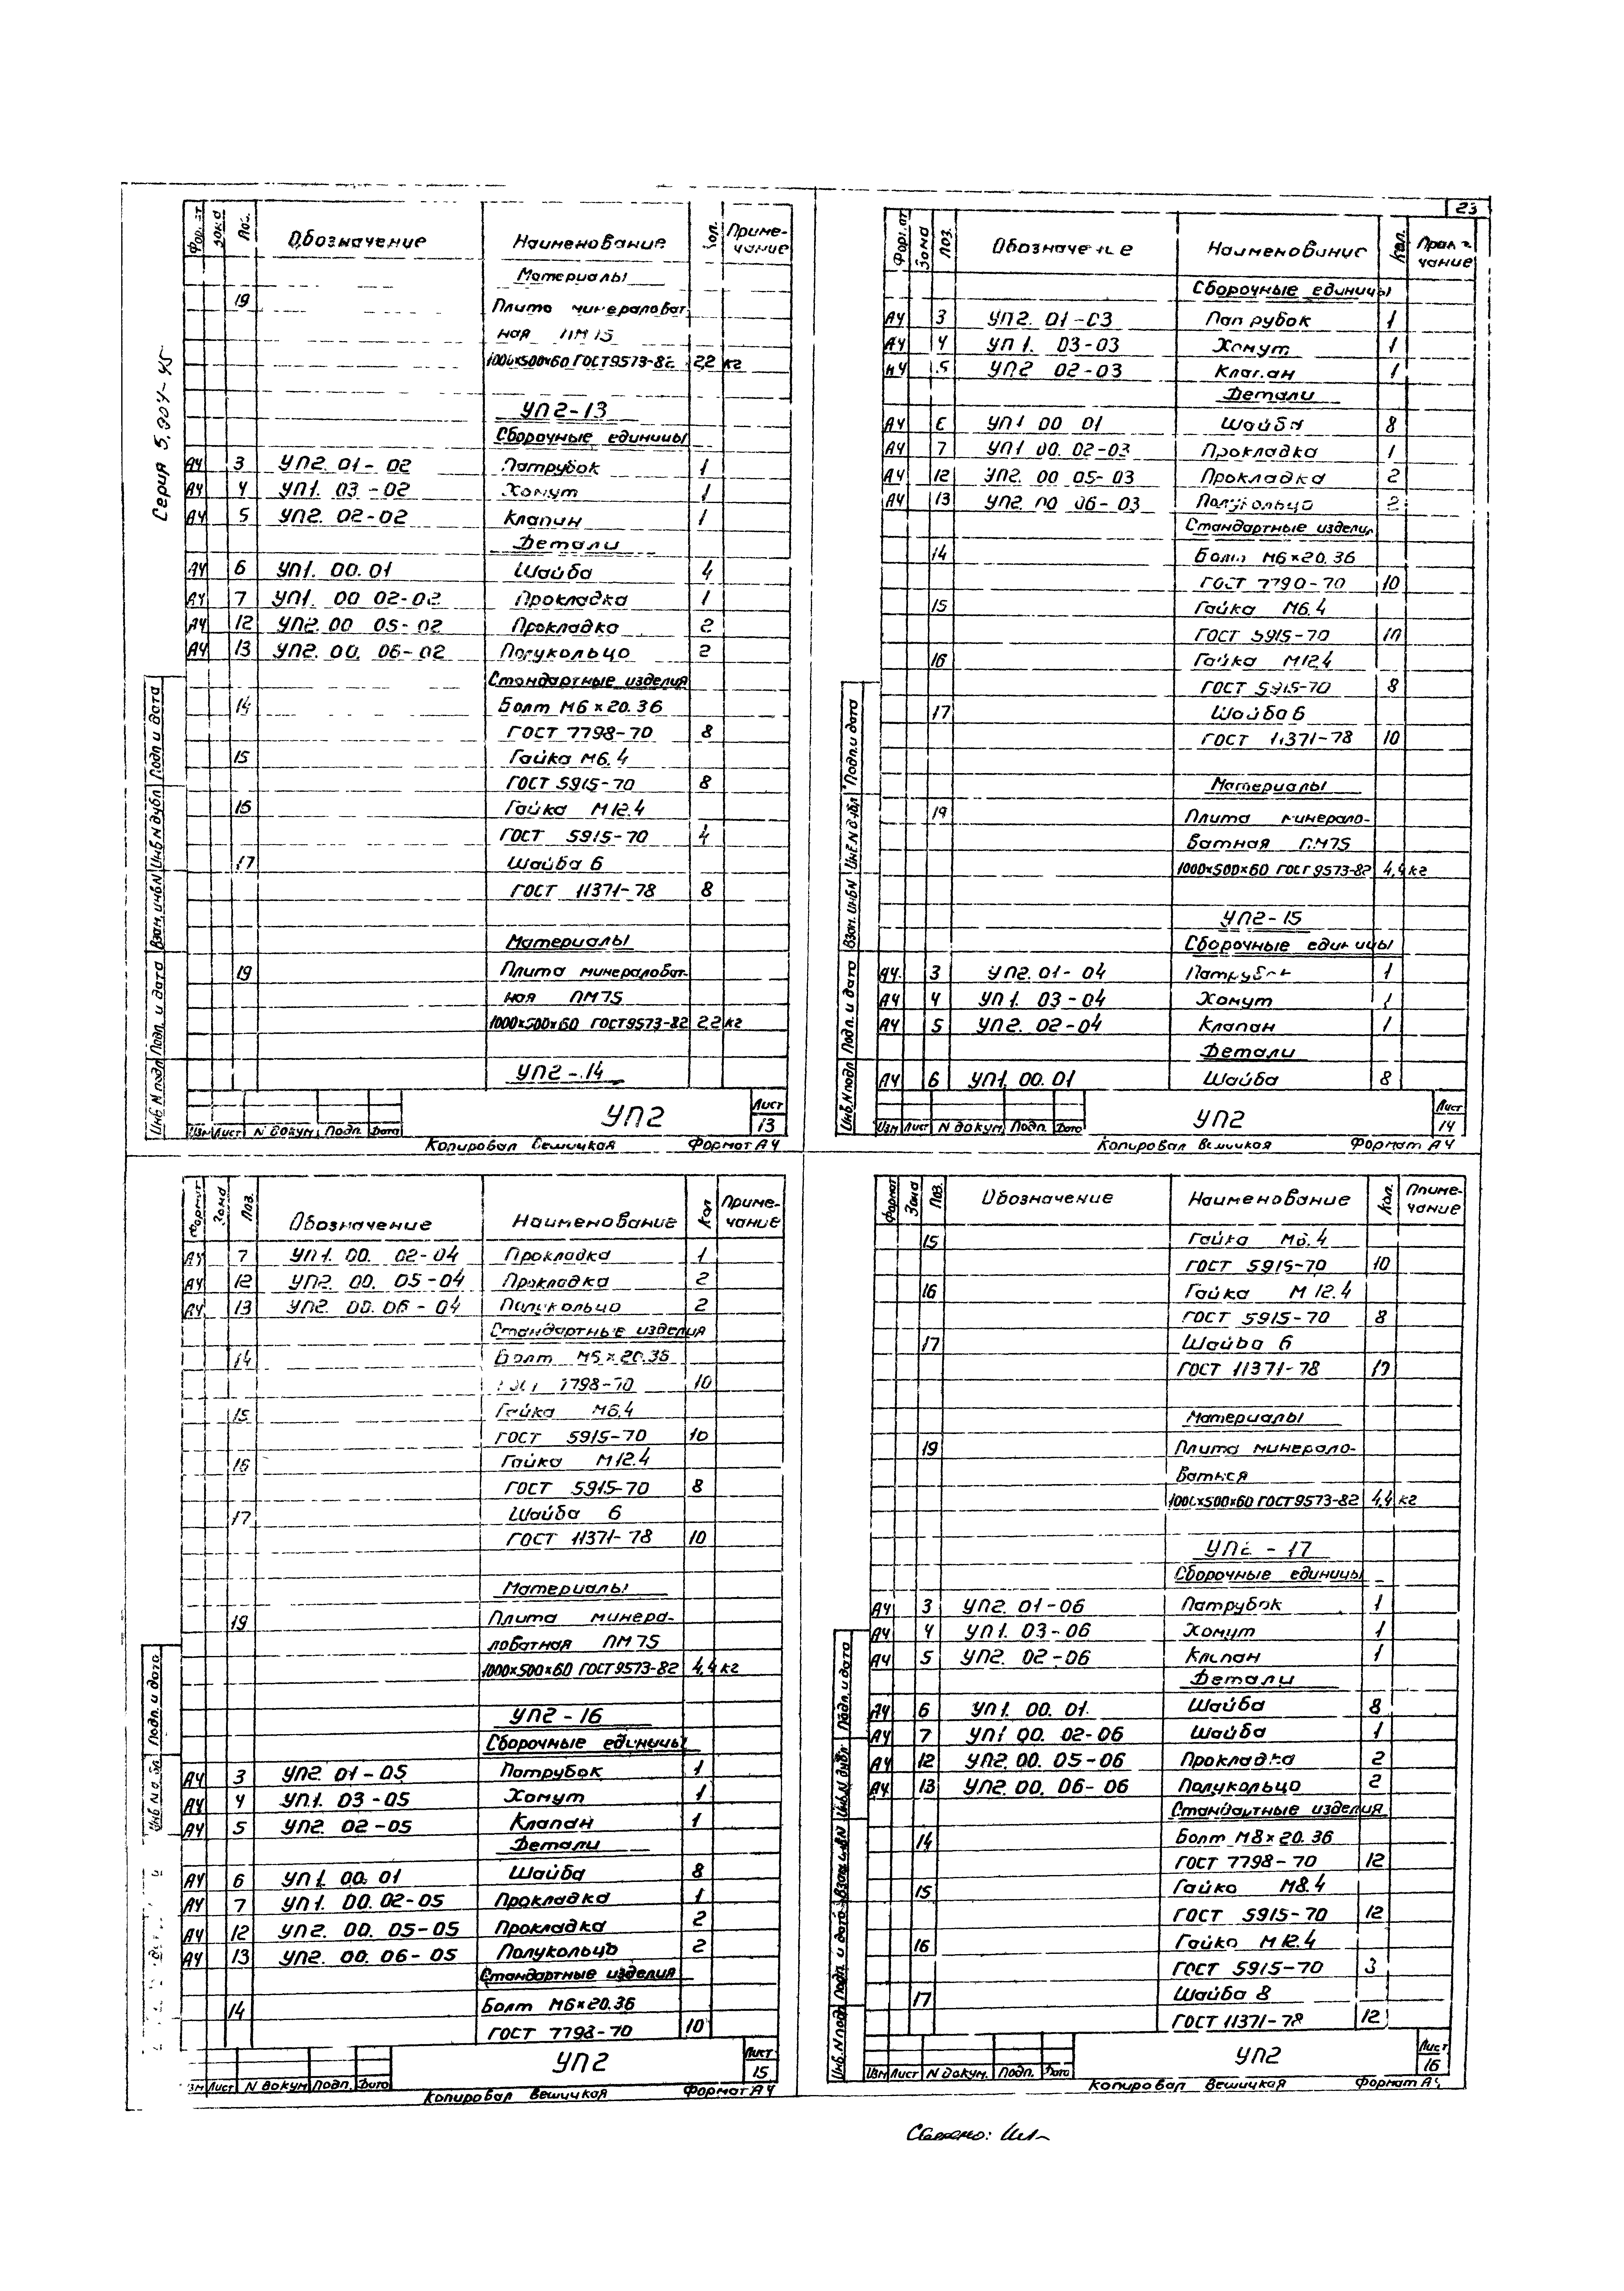 Серия 5.904-45
23
Формат Зона Поз. Обозначение Наименование Кол. Приме-
чание
Материалы
19 Плита минераловат
ная ПМ75
1000х500х60 ГОСТ9573-82 2,2 кг
УП2-13
Сборочные единицы
А4 3 УП2. 01-02 Патрубок 1
А4 4 УП1. 03-02 Хомут 1
А4 5 УП2. 02-02 Клапан 1
Детали
А4 6 УП1. 00.01 Шайба 4
А4 7 УП1. 00 02-02 Прокладка 1
А4 12 УП2. 00 05-02 Прокладка 2
А4 13 УП2. 00. 06-02 Полукольцо 2
Стандартные изделия
14 Болт М6х20.36
ГОСТ 7798-70 8
15 Гайка М6.4
ГОСТ 5915-70 8
16 Гайка М12.4
ГОСТ 5915-70 4
17 Шайба 6
ГОСТ 11371-78 8
Материалы
19 Плита минераловат-
ная ПМ75
1000х500х60 ГОСТ9573-82 2,2 кг
УП2-14
Инв.N подл Подп. и дата Взам.инвN Инв N дубл Подп и дата
Изм Лист N докум. Подп. Дата
УП2
Лист
13
Копировал Вешицкая Формат А4
Формат Зона Поз. Обозначение Наименование Кол. Приме-
чание
Сборочные единицы
А4 3 УП2. 01-03 Патрубок 1
А4 4 УП1. 03-03 Хомут 1
А4 5 УП2 02-03 Клапан 1
Детали
А4 6 УП1 00 01 Шайба 8
А4 7 УП1 00. 02-03 Прокладка 1
А4 12 УП2. 00 05-03 Прокладка 2
А4 13 УП2. 00 06-03 Полукольцо 2
Стандартные изделия
14 Болт М6х20.36
ГОСТ 7790-70 10
15 Гайка М6.4
ГОСТ 5915-70 10
16 Гайка М12.4
ГОСТ 5915-70 8
17 Шайба 6
ГОСТ 11371-78 10
Материалы
19 Плита минерало-
ватная ПМ75
1000х500х60 ГОСТ9573-82 4,4 кг
УП2-15
Сборочные единицы
А4 3 УП2. 01-04 Патрубок 1
А4 4 УП1. 03-04 Хомут 1
А4 5 УП2. 02-04 Клапан 1
Детали
А4 6 УП1. 00.01 Шайба 8
Инв.N подл Подп. и дата Взам. инвN Инв.N дубл Подп. и дата
Изм Лист N докум. Подп. Дата
УП2
Лист
14
Копировал Вешицкая Формат А4
Формат Зона Поз. Обозначение Наименование Кол Приме-
чание
А4 7 УП1. 00. 02-04 Прокладка 1
А4 12 УП2. 00. 05-04 Прокладка 2
А4 13 УП2. 00. 06-04 Полукольцо 2
Стандартные изделия
14 Болт М6х20.36
ГОСТ 7798-70 10
15 Гайка М6.4
ГОСТ 5915-70 10
16 Гайка М12.4
ГОСТ 5915-70 8
17 Шайба 6
ГОСТ 11371-78 10
Материалы
19 Плита минера-
ловатная ПМ75
1000х500х60 ГОСТ9573-82 4,4 кг
УП2-16
Сборочные единицы
А4 3 УП2. 01-05 Патрубок 1
А4 4 УП1. 03-05 Хомут 1
А4 5 УП2. 02-05 Клапан 1
Детали
А4 6 УП1. 00. 01 Шайба 8
А4 7 УП1. 00. 02-05 Прокладка 1
А4 12 УП2. 00. 05-05 Прокладка 2
А4 13 УП2. 00. 06-05 Полукольцо 2
Стандартные изделия
14 Болт М6х20.36
ГОСТ 7798-70 10
Подп. и дата
Изм Лист N докум Подп. Дата
УП2
Лист
15
Копировал Вешицкая Формат А4
Формат Зона Поз. Обозначение Наименование Кол. Приме-
чание
15 Гайка М6.4
ГОСТ 5915-70 10
16 Гайка М12.4
ГОСТ 5915-70 8
17 Шайба 6
ГОСТ 11371-78 10
Материалы
19 Плита минерало-
ватная
1000х500х60 ГОСТ9573-82 4,4 кг
УП2-17
Сборочные единицы
А4 3 УП2. 01-06 Патрубок 1
А4 4 УП1. 03-06 Хомут 1
А4 5 УП2. 02-06 Клапан 1
Детали
А4 6 УП1. 00. 01. Шайба 8
А4 7 УП1 00. 02-06 Шайба 1
А4 12 УП2. 00. 05-06 Прокладка 2
А4 13 УП2. 00. 06-06 Полукольцо 2
Стандартные изделия
14 Болт М8х20.36
ГОСТ 7798-70 12
15 Гайка М8.4
ГОСТ 5915-70 12
16 Гайка М12.4
ГОСТ 5915-70 3
17 Шайба 8
ГОСТ 11371-78 12
Инв.N подл Подп. и дата Взам.инвN Инв.N дубл Подп. и дата
Изм Лист N докум. Подп. Дата
УП2
Лист
16
Копировал Вешицкая Формат А4